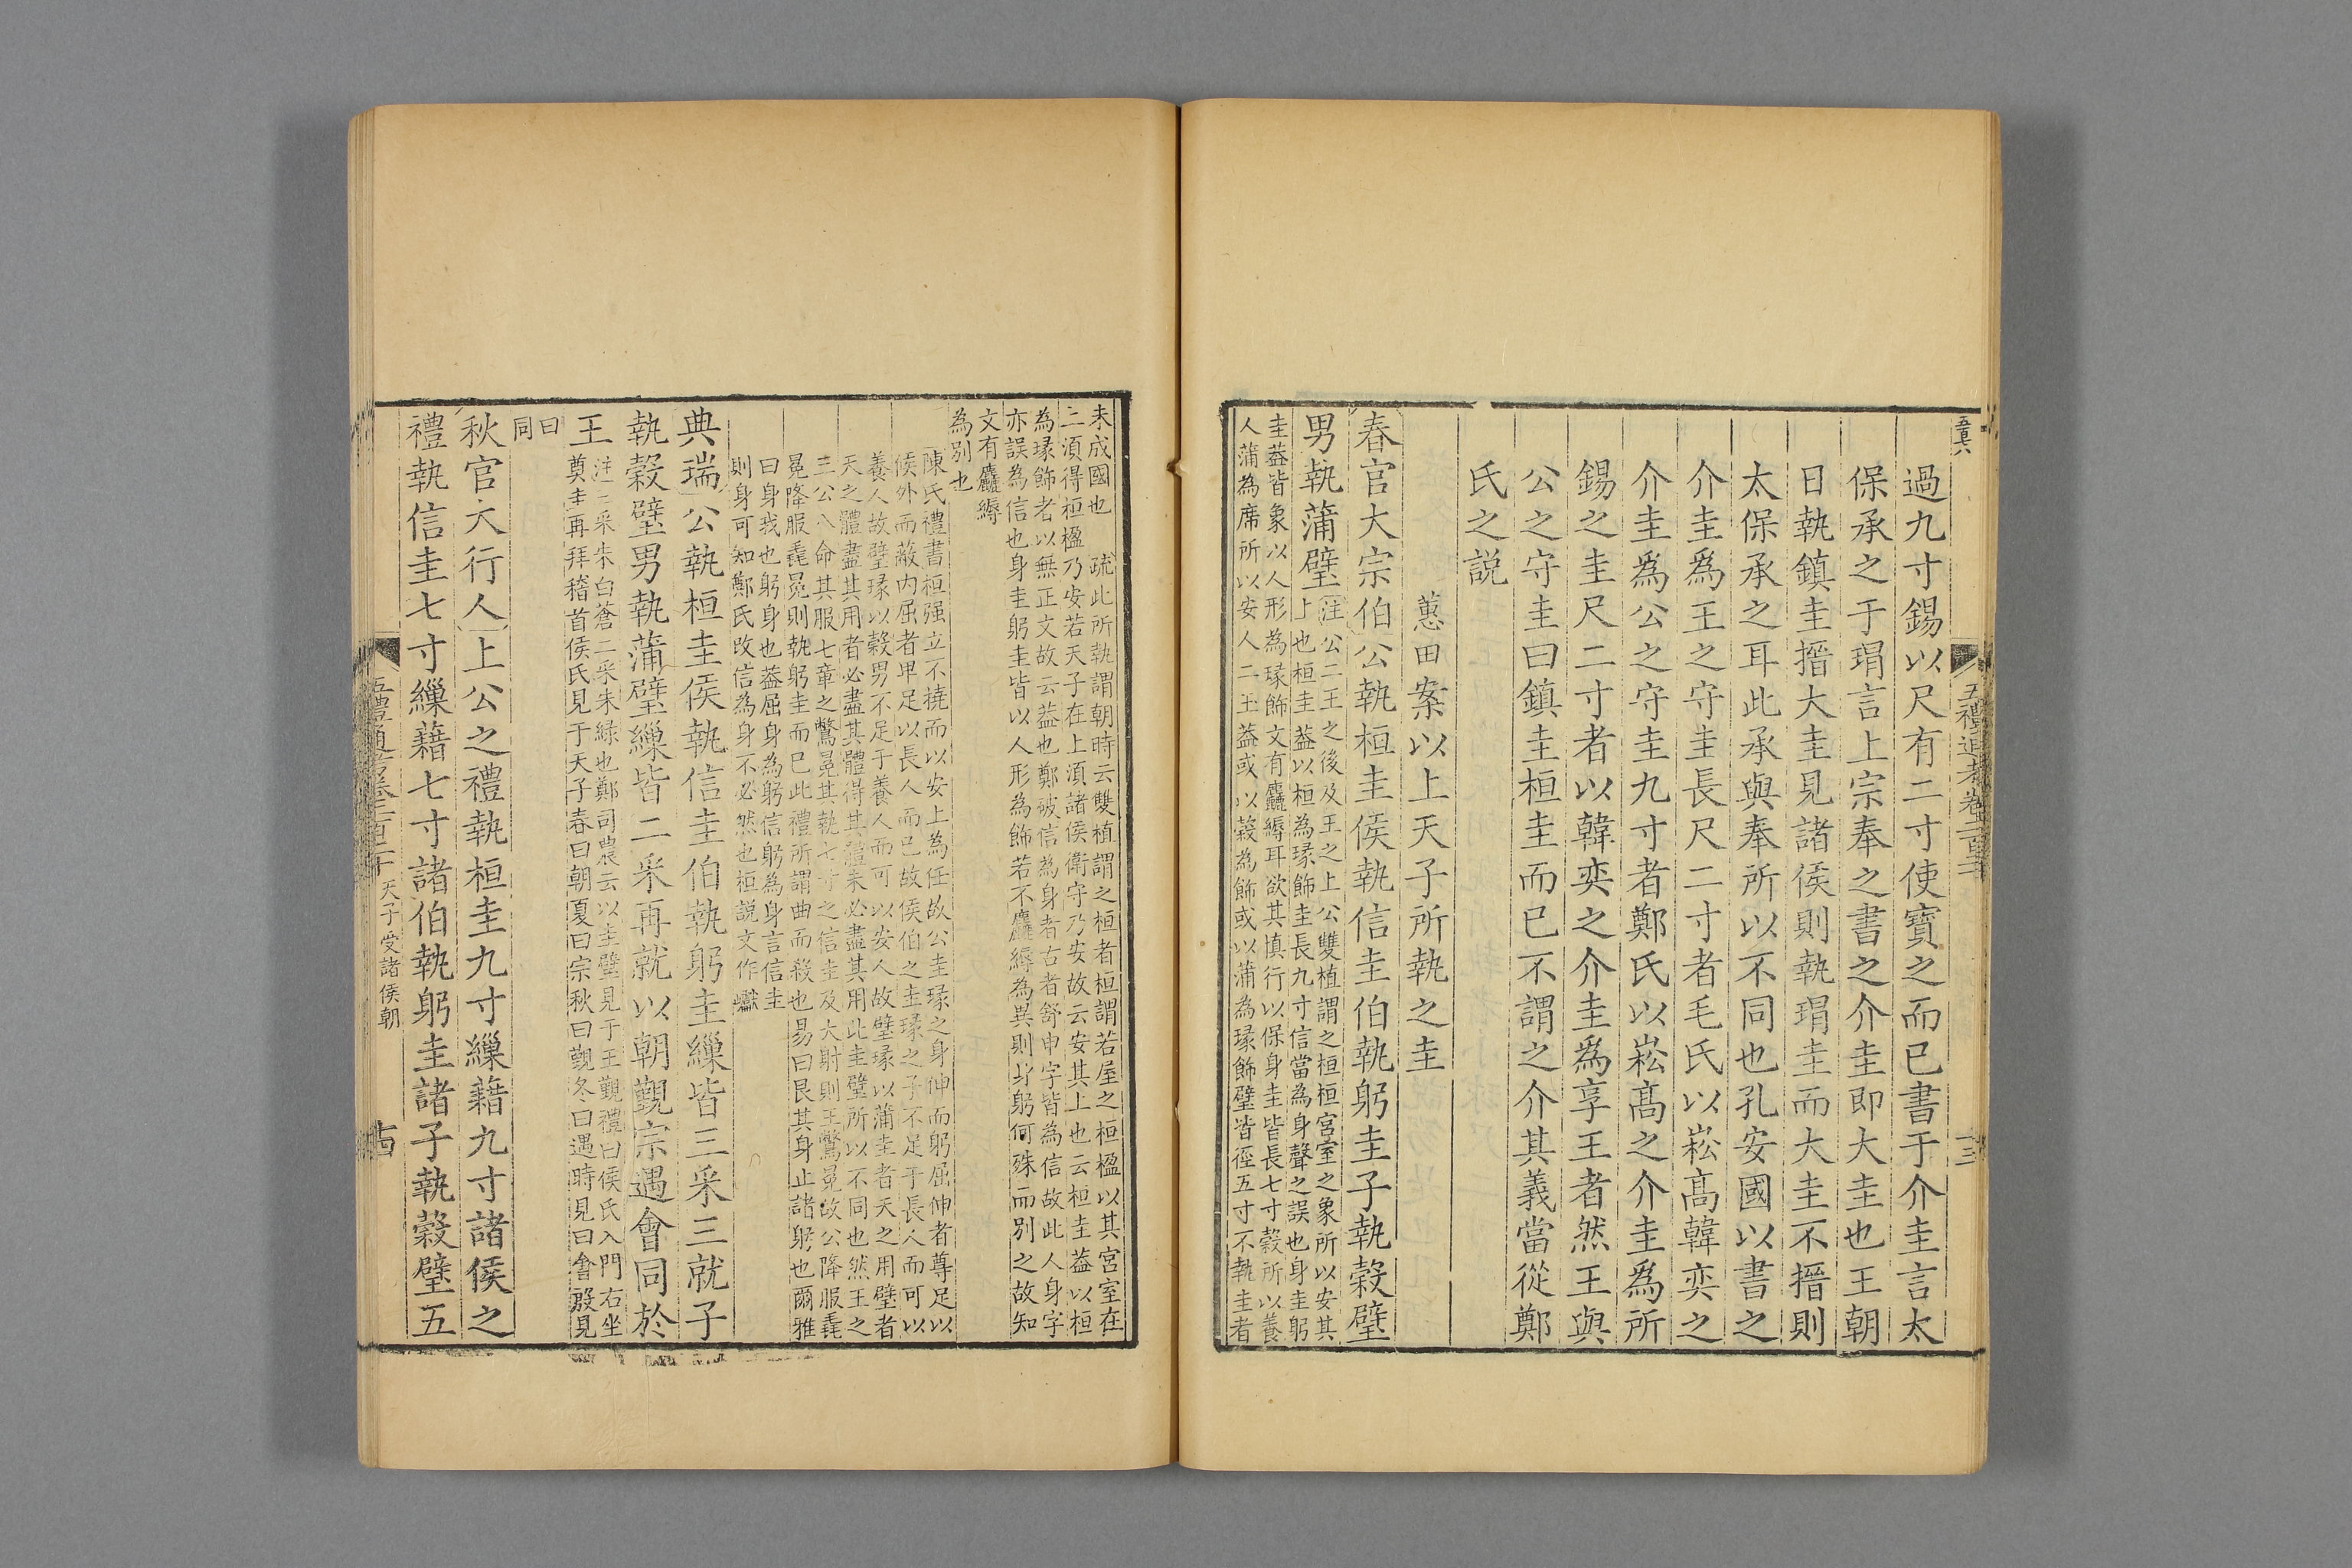 過九寸錫以尺有二寸使寶之而已書于介圭言太
保承之于瑁言上宗奉之書之介圭即大圭也王朝
日執鎮圭搢大圭見諸侯則執瑁圭而大圭不搢則
太保承之耳此承與奉所以不同也孔安國以書之
介圭爲王之守圭長尺二寸者毛氏以崧髙韓奕之
介圭爲公之守圭九寸者鄭氏以崧髙之介圭爲所
錫之圭尺二寸者以韓奕之介圭爲享王者然王與
公之守圭曰鎮圭桓圭而已不謂之介其義當從鄭
氏之説
蕙田案以上天子所執之圭
春官大宗伯公執桓圭侯執信圭伯執躬圭子執榖璧
男執蒲璧
注公二王之後及王之上公雙植謂之桓桓宮室之象所以安其
上也桓圭葢以桓為瑑飾圭長九寸信當為身聲之誤也身圭躬
圭葢皆象以人形為瑑飾文有麤縟耳欲其慎行以保身圭皆長七寸榖所以養
人蒲為席所以安人二玉葢或以榖為飾或以蒲為瑑飾璧皆徑五寸不執圭者
未成國也　疏此所執謂朝時云雙植謂之桓者桓謂若屋之桓楹以其宮室在
二須得桓楹乃安若天子在上須諸侯衛守乃安故云安其上也云桓圭葢以桓
為瑑飾者以無正文故云葢也鄭破信為身者古者舒申字皆為信故此人身字
亦誤為信也身圭躬圭皆以人形為飾若不麤縟為異則身躬何殊而別之故知
文有麤縟
為別也
陳氏禮書桓强立不撓而以安上為任故公圭瑑之身伸而躬屈伸者尊足以
侯外而蔽内屈者卑足以長人而已故侯伯之圭瑑之子不足于長人而可以
養人故璧瑑以榖男不足于養人而可以安人故璧瑑以蒲圭者天之用璧者
天之體盡其用者必盡其體得其體未必盡其用此圭璧所以不同也然王之
三公八命其服七章之鷩冕其執七寸之信圭及大射則王鷩冕故公降服毳
冕降服毳冕則執躬圭而已此禮所謂曲而殺也易曰艮其身止諸躬也爾雅
曰身我也躬身也葢屈身為躬信躬為身言信圭
則身可知鄭氏改信為身不必然也桓説文作瓛
典瑞公執桓圭侯執信圭伯執躬圭繅皆三采三就子
執榖璧男執蒲璧繅皆二采再就以朝覲宗遇會同於
王
注三采朱白蒼二采朱緑也鄭司農云以圭璧見于王覲禮曰侯氏入門右坐
奠圭再拜稽首侯氏見于天子春曰朝夏曰宗秋曰覲冬曰遇時見曰會殷見
曰
同
秋官大行人上公之禮執桓圭九寸繅藉九寸諸侯之
禮執信圭七寸繅藉七寸諸伯執躬圭諸子執榖璧五
五禮通考卷二百二十
天子受諸侯朝